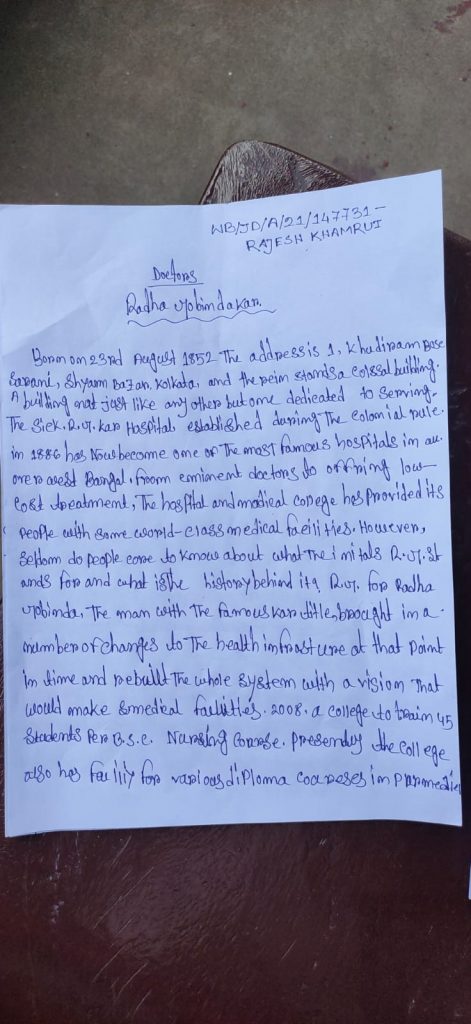 WB/JD/A/21/147731-
RAJESH KHAMRUI
Doctors
Radha Gobinda kar.
Born on 23rd August 1852 The address is 1, Khudiram Bose
Sarani, Shyam Bazar, Kolkata, and the reim stands a colssal building.
A building not just like any other but ome dedicated to serving-
The Siek. R.G. kar Hospital, established during The colonial rule.
in 1886 has Now become one of The most famous hospitals in au
over west Bangal. from eminent doctors to offring low-
Cost treatment, The hospital and medical college has provided its
people with some world-class medical facilities. However,
Seldom do people come to know about what The imitals R.G. St
ands for and what is The history behind it? R.G. for Radha
Gobinda, The man with The famous kar title, brought in a
number of changes to The health infrasture at that point
in time and rebuilt The whole system with a vision That
would make medical facilities. 2008. a college to train 45
Students Per B.S.C. Nursing Course. Presendy the coll ege
also has facility for various diploma coareses in parmedic